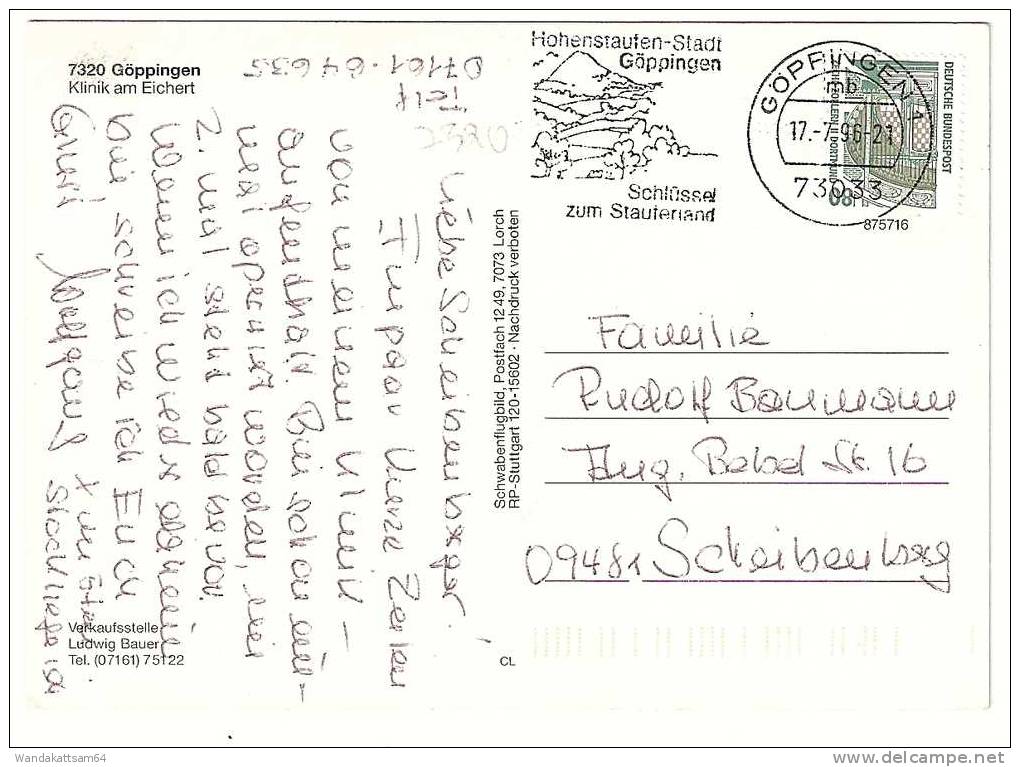 7320 Göppingen
Klinik am Eichert
Telf.
07161-64635
7320
Liebe Scheibenberger!
Ein paar kurze Zeilen
von meinem Klinik-
aufenthalt. Bin schon ein-
mal operiert worden, ein
2. mal steht bald bevor.
Wenn ich wieder daheim
bin schreibe ich Euch
Gruß Wolfgang
x unter
Stock liege ich
Verkaufsstelle
Ludwig Bauer
Tel. (07161) 75122
Schwabenflugbild, Postfach 1249, 7073 Lorch
RP-Stuttgart 120-15602 · Nachdruck verboten
CL
Hohenstaufen-Stadt
Göppingen
Schlüssel
zum Stauferland
GÖPPINGEN 1
mb
17.-7.96-21
73033
DEUTSCHE BUNDESPOST
ZECHE ZOLLERN II DORTMUND
80
875716
Familie
Rudolf Baumann
Aug. Bebel St. 16
09481 Scheibenberg
Wandakattsam64
www.delcampe.net